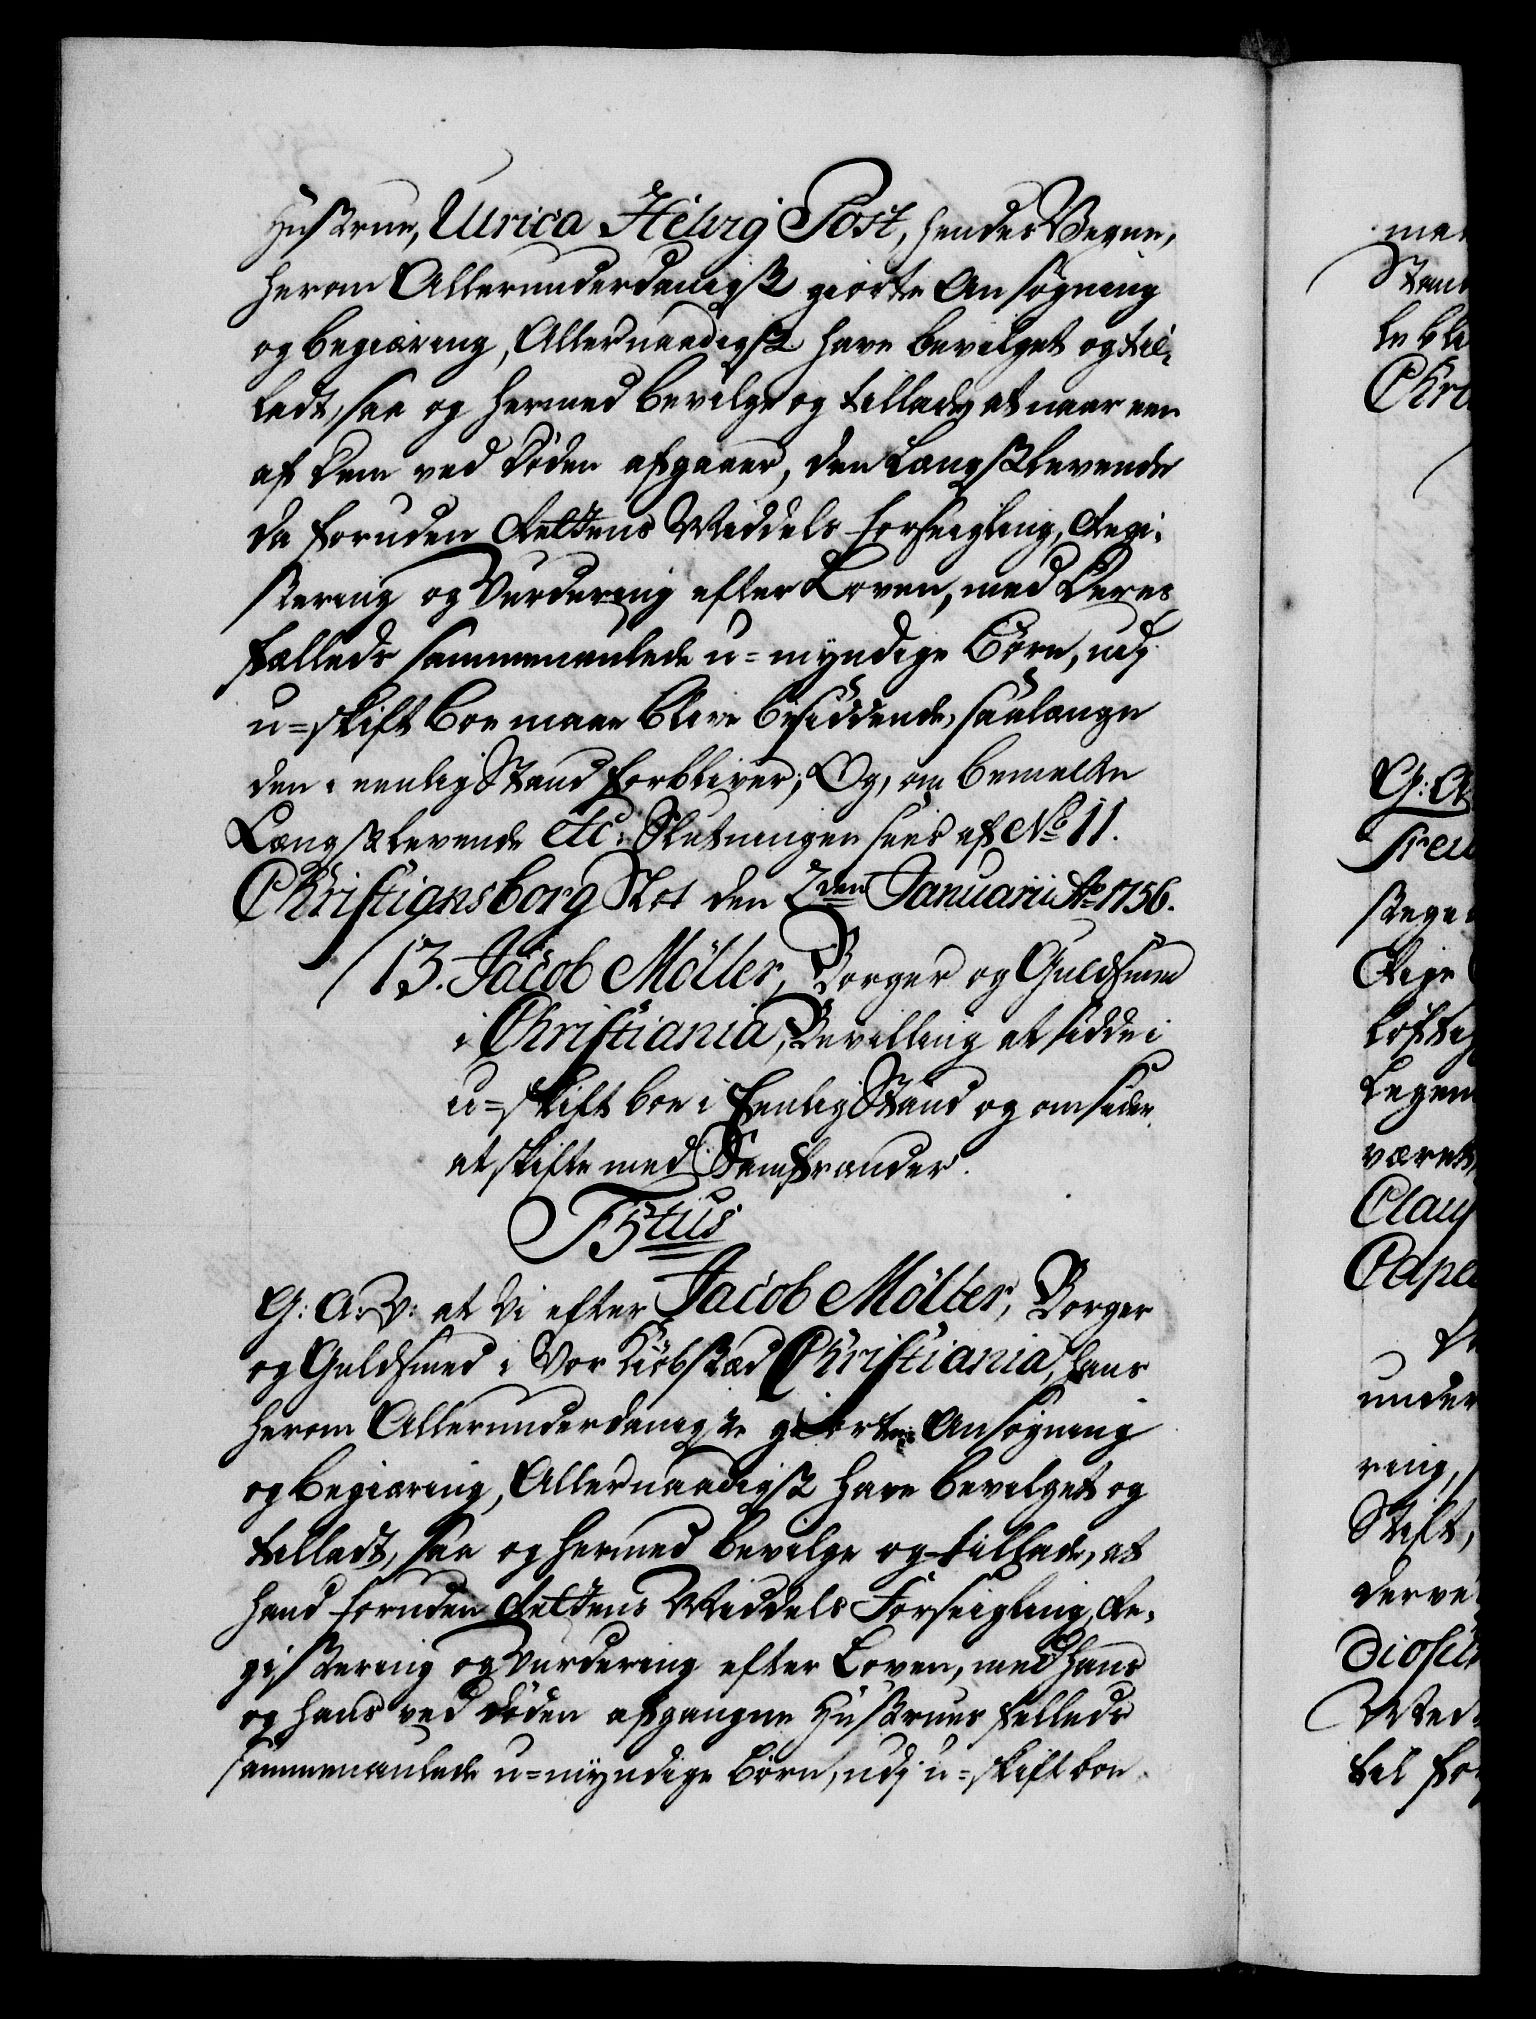 Hustrue, Ulrica Helvig Post, hendes Vegne,
herom Allerunderdanigst giorte Ansøgning
og begiæring, Allernaadigst have bevilget og til-
ladt, saa og hermed bevilge og tillade, at naar een
af dem ved døden afgaaer, den Længstlevende
da foruden Rettens Middels Forseigling, Regi-
stering og Vurdering efter Loven, med Deres
fælleds sammenavlede u-myndige Børn, udj
u-skift boe maae blive besiddende, saalænge
den i eenlig Stand forbliver; Og, om bemelte
Længstlevende etc: Slutningen sees af No 11.
Christiansborg Slot den 2den Januarii Ao 1756.
13. Jacob Möller, Borger og Guldsmed
i Christiania, Bevilling at sidde i
u-skift boe i Eenlig Stand og omsider
at skifte med Samfrænder.
F5tus
G: A: V: at Vi efter Jacob Möller, Borger
og Guldsmed i Vor Kiøbstæd Christiania, hans
herom Allerunderdanigste giorte Ansøgning
og begiæring, Allernaadigst have bevilget og
tilladt, saa og hermed bevilge og tillade, at
hand foruden Rettens Middels Forseigling, Re-
gistering og Vurdering efter Loven, med hans
og hans ved døden afgangne Hustrues fælleds
sammenavlede u-myndige Børn, udj u-skift boe